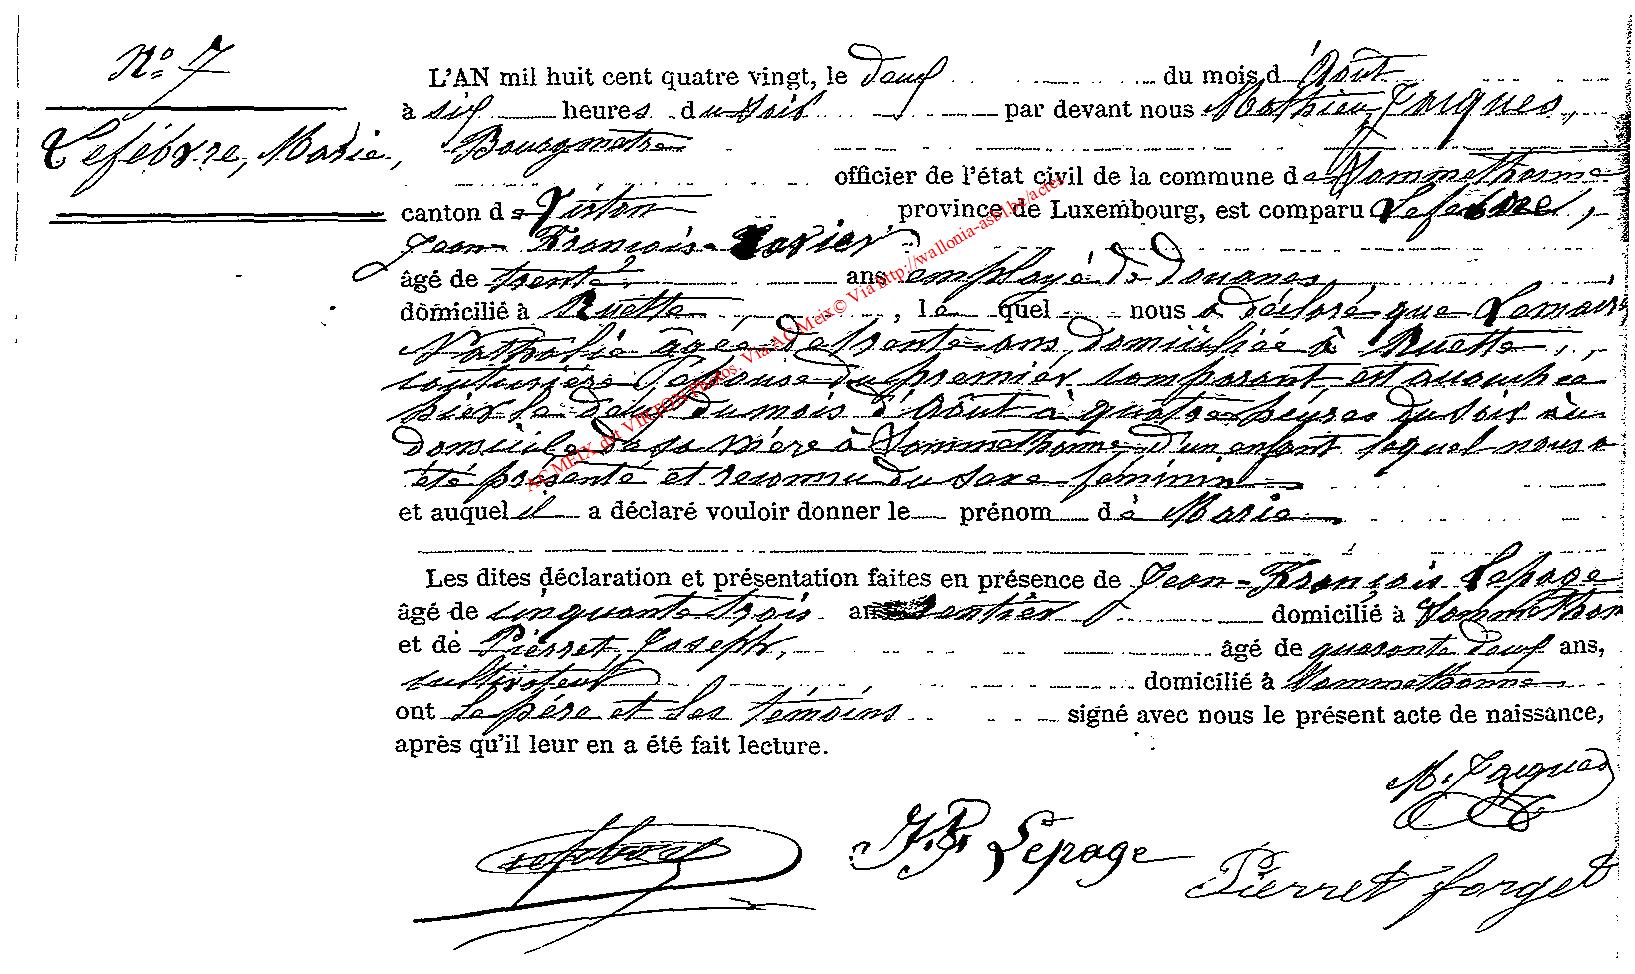 N° 7
Lefèbvre, Marie,
L'AN mil huit cent quatre vingt, le deux du mois d'Août
à six heures du soir par devant nous Mathieu Jacques,
Bourgmetre
officier de l'état civil de la commune de Sommethonne
canton de Virton province de Luxembourg, est comparu Lefebvre,
Jean-François-Xavier
âgé de trente ans employé de douanes
domicilié à Ruette, lequel nous a déclaré que Lemaire
Nathalie âgée de trente ans, domiciliée à Ruette,
couturière, épouse du premier comparant est accouchée
hier le deux du mois d'Août à quatre heures du soir au
domicile de sa mère à Sommethonne d'un enfant lequel nous a
été présenté et reconnu du sexe féminin
et auquel il a déclaré vouloir donner le prénom de Marie
Les dites déclaration et présentation faites en présence de Jean-François Lepage
âgé de cinquante trois ans rentier domicilié à Sommethon
et de Pierret Joseph, âgé de quarante deux ans,
cultivateur domicilié à Sommethonne
ont le père et les témoins signé avec nous le présent acte de naissance,
après qu'il leur en a été fait lecture.
M. Jacques
Lefebvre
J.F. Lepage
Pierret
AC MEIX dvt VIRTON Photos. Via AC Meix© Via http://wallonia-asbl.be/actes